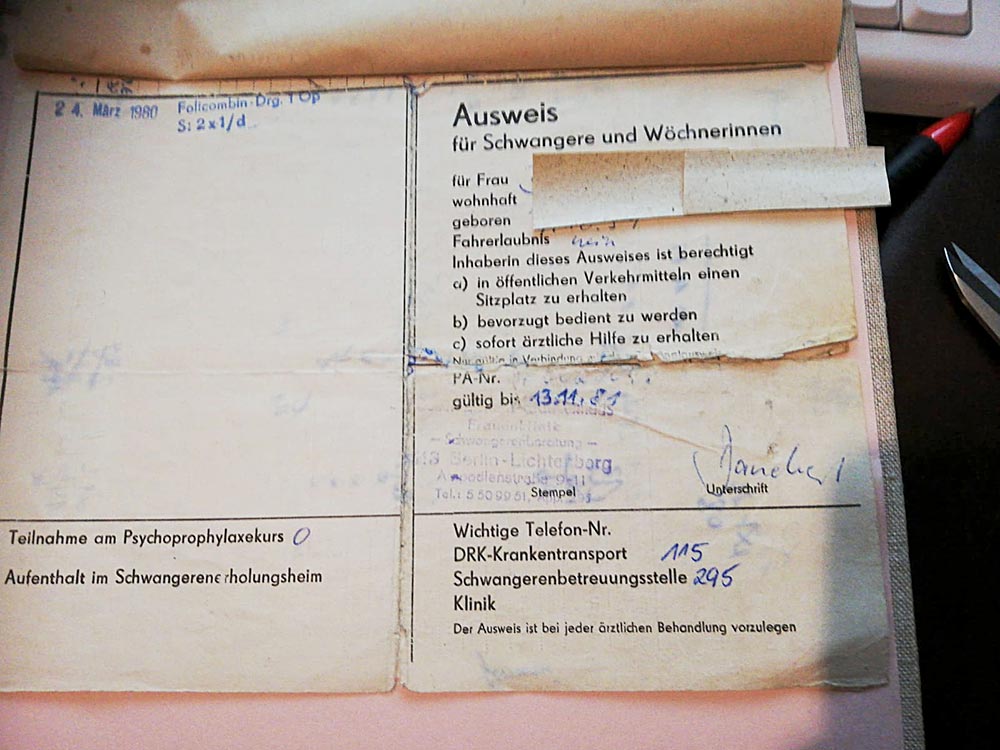 24. März 1980
Folicombin-Drg. 1 Op
S: 2x1/d
Teilnahme am Psychoprophylaxekurs 0
Aufenthalt im Schwangerenerholungsheim
Ausweis
für Schwangere und Wöchnerinnen
für Frau
wohnhaft
geboren
Fahrerlaubnis nein
Inhaberin dieses Ausweises ist berechtigt
a) in öffentlichen Verkehrmitteln einen
Sitzplatz zu erhalten
b) bevorzugt bedient zu werden
c) sofort ärztliche Hilfe zu erhalten
Nur gültig in Verbindung
PA-Nr.
gültig bis 13.11.81
Frauenklinik
— Schwangerenberatung —
Berlin-Lichtenberg
9-11
Tel.: 5 50 99 51
Stempel
Unterschrift
Wichtige Telefon-Nr.
DRK-Krankentransport 115
Schwangerenbetreuungsstelle 295
Klinik
Der Ausweis ist bei jeder ärztlichen Behandlung vorzulegen